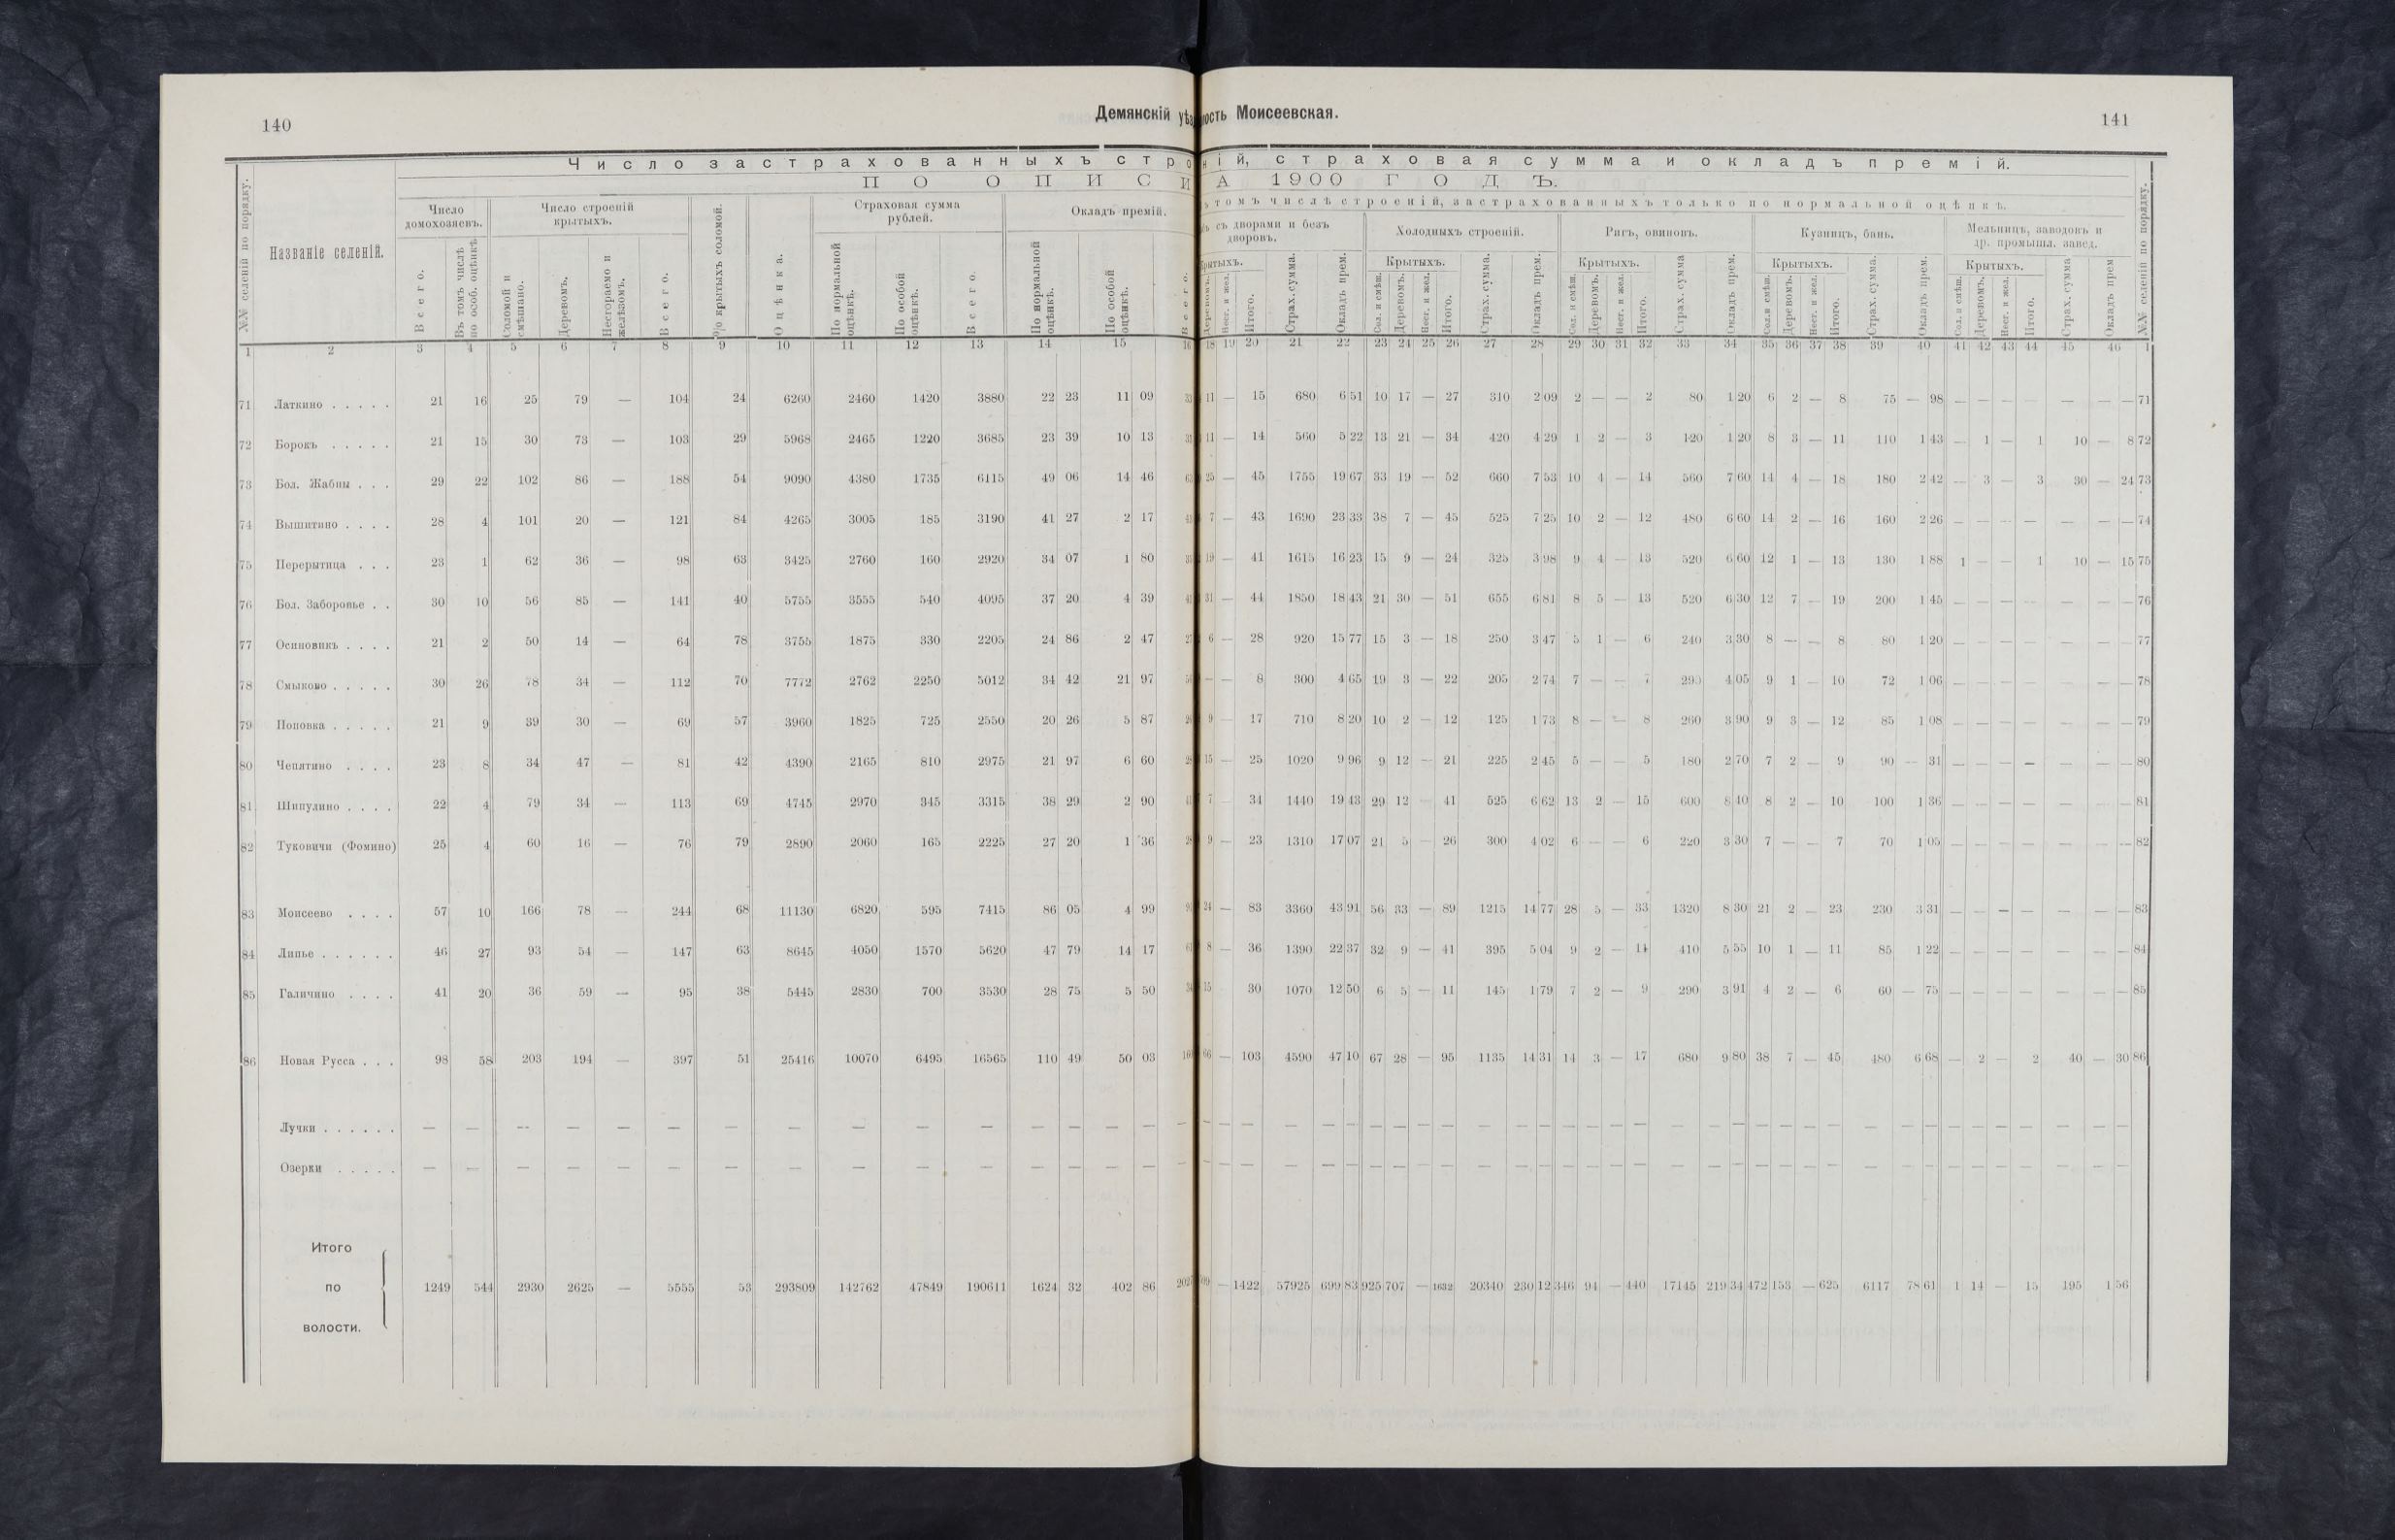 140
Демянскій уѣз
лость Моисеевская.
141
Число застрахованныхъ стро
ній, страховая сумма и окладъ премій.
ПО ОПИСИ
А 1900 ГОДЪ.
томъ числѣ строеній, застрахованныхъ только по нормальной оцѣнкѣ.
№№ селеній по порядку.
Названіе селеній.
Число домохозяевъ.
Всего.
Въ томъ числѣ по особ. оцѣнкѣ
Число строеній крытыхъ.
Соломой и смѣшано.
Деревомъ.
Несгораемо и желѣзомъ.
Всего.
% крытыхъ соломой.
Оцѣнка.
Страховая сумма рублей.
По нормальной оцѣнкѣ.
По особой оцѣнкѣ.
Всего.
Окладъ премій.
По нормальной оцѣнкѣ.
По особой оцѣнкѣ.
съ дворами и безъ дворовъ.
Крытыхъ.
Деревомъ.
Несг. и жел.
Итого.
Страх. сумма.
Окладъ прем.
Холодныхъ строеній.
Крытыхъ.
Сол. и смѣш.
Деревомъ.
Несг. и жел.
Итого.
Страх. сумма.
Окладъ прем.
Ригъ, овиновъ.
Крытыхъ.
Сол. и смѣш.
Деревомъ.
Несг. и жел.
Итого.
Страх. сумма
Окладъ прем.
Кузницъ, бань.
Крытыхъ.
Сол. и смѣш.
Деревомъ.
Несг. и жел.
Итого.
Страх. сумма.
Окладъ прем.
Мельницъ, заводовъ и др. промышл. завед.
Крытыхъ.
Сол. и смѣш.
Деревомъ.
Несг. и жел.
Итого.
Страх. сумма
Окладъ прем
№№ селеній по порядку.
1 2 3 4 5 6 7 8 9 10 11 12 13 14 15 16 18 19 20 21 22 23 24 25 26 27 28 29 30 31 32 33 34 35 36 37 38 39 40 41 42 43 44 45 46 1
71 Латкино . . . . . 21 16 25 79 — 104 24 6260 2460 1420 3880 22 23 11 09 11 — 15 680 6 51 10 17 — 27 310 2 09 2 — — 2 80 1 20 6 2 — 8 75 — 98 — — — — — — — 71
72 Борокъ . . . . . 21 15 30 73 — 103 29 5968 2465 1220 3685 23 39 10 13 11 — 14 560 5 22 13 21 — 34 420 4 29 1 2 — 3 120 1 20 8 3 — 11 110 1 43 — 1 — 1 10 — 8 72
73 Бол. Жабны . . . 29 22 102 86 — 188 54 9090 4380 1735 6115 49 06 14 46 25 — 45 1755 19 67 33 19 — 52 660 7 53 10 4 — 14 560 7 60 14 4 — 18 180 2 42 — 3 — 3 30 — 24 73
74 Вышитино . . . . 28 4 101 20 — 121 84 4265 3005 185 3190 41 27 2 17 7 — 43 1690 23 33 38 7 — 45 525 7 25 10 2 — 12 480 6 60 14 2 — 16 160 2 26 — — — — — — — 74
75 Перерытица . . . 23 1 62 36 — 98 63 3425 2760 160 2920 34 07 1 80 19 — 41 1615 16 23 15 9 — 24 325 3 98 9 4 — 13 520 6 60 12 1 — 13 130 1 88 1 — — 1 10 — 15 75
76 Бол. Заборовье . . 30 10 56 85 — 141 40 5755 3555 540 4095 37 20 4 39 31 — 44 1850 18 43 21 30 — 51 655 6 81 8 5 — 13 520 6 30 12 7 — 19 200 1 45 — — — — — — — 76
77 Осиновикъ . . . . 21 2 50 14 — 64 78 3755 1875 330 2205 24 86 2 47 6 — 28 920 15 77 15 3 — 18 250 3 47 5 1 — 6 240 3 30 8 — — 8 80 1 20 — — — — — — — 77
78 Смыково . . . . . 30 26 78 34 — 112 70 7772 2762 2250 5012 34 42 21 97 — — 8 300 4 65 19 3 — 22 205 2 74 7 — — 7 290 4 05 9 1 — 10 72 1 06 — — — — — — — 78
79 Поповка . . . . . 21 9 39 30 — 69 57 3960 1825 725 2550 20 26 5 87 9 — 17 710 8 20 10 2 — 12 125 1 73 8 — — 8 260 3 90 9 3 — 12 85 1 08 — — — — — — — 79
80 Чепятино . . . . 23 8 34 47 — 81 42 4390 2165 810 2975 21 97 6 60 15 — 25 1020 9 96 9 12 — 21 225 2 45 5 — — 5 180 2 70 7 2 — 9 90 — 31 — — — — — — — 80
81 Шипулино . . . . 22 4 79 34 — 113 69 4745 2970 345 3315 38 29 2 90 7 — 34 1440 19 43 29 12 41 525 6 62 13 2 — 15 600 8 40 8 2 — 10 100 1 36 — — — — — — — 81
82 Туковичи (Фомино) 25 4 60 16 — 76 79 2890 2060 165 2225 27 20 1 36 9 — 23 1310 17 07 21 5 — 26 300 4 02 6 — — 6 220 3 30 7 — — 7 70 1 05 — — — — — — — 82
83 Моисеево . . . . 57 10 166 78 — 244 68 11130 6820 595 7415 86 05 4 99 24 — 83 3360 43 91 56 33 — 89 1215 14 77 28 5 — 33 1320 8 30 21 2 — 23 230 3 31 — — — — — — — 83
84 Липье . . . . . . 46 27 93 54 — 147 63 8645 4050 1570 5620 47 79 14 17 8 — 36 1390 22 37 32 9 — 41 395 5 04 9 2 — 11 410 5 55 10 1 — 11 85 1 22 — — — — — — — 84
85 Галичино . . . . 41 20 36 59 — 95 38 5445 2830 700 3530 28 75 5 50 15 30 1070 12 50 6 5 — 11 145 1 79 7 2 — 9 290 3 91 4 2 — 6 60 — 75 — — — — — — — 85
86 Новая Русса . . . 98 58 203 194 — 397 51 25416 10070 6495 16565 110 49 50 03 66 — 103 4590 47 10 67 28 — 95 1135 14 31 14 3 — 17 680 9 80 38 7 — 45 480 6 68 — 2 — 2 40 — 30 86
Лучки . . . . . . — — — — — — — — — — — — — — — — — — — — — — — — — — — — — — — — — — — — — — — — — — — — — — — — — — — —
Озерки . . . . . — — — — — — — — — — — — — — — — — — — — — — — — — — — — — — — — — — — — — — — — — — — — — — — — — — — —
Итого
по 1249 544 2930 2625 — 5555 53 293809 142762 47849 190611 1624 32 402 86 — 1422 57925 699 83 925 707 — 1632 20340 230 12 346 94 — 440 17145 219 34 472 153 — 625 6117 78 61 1 14 — 15 195 1 56
волости.